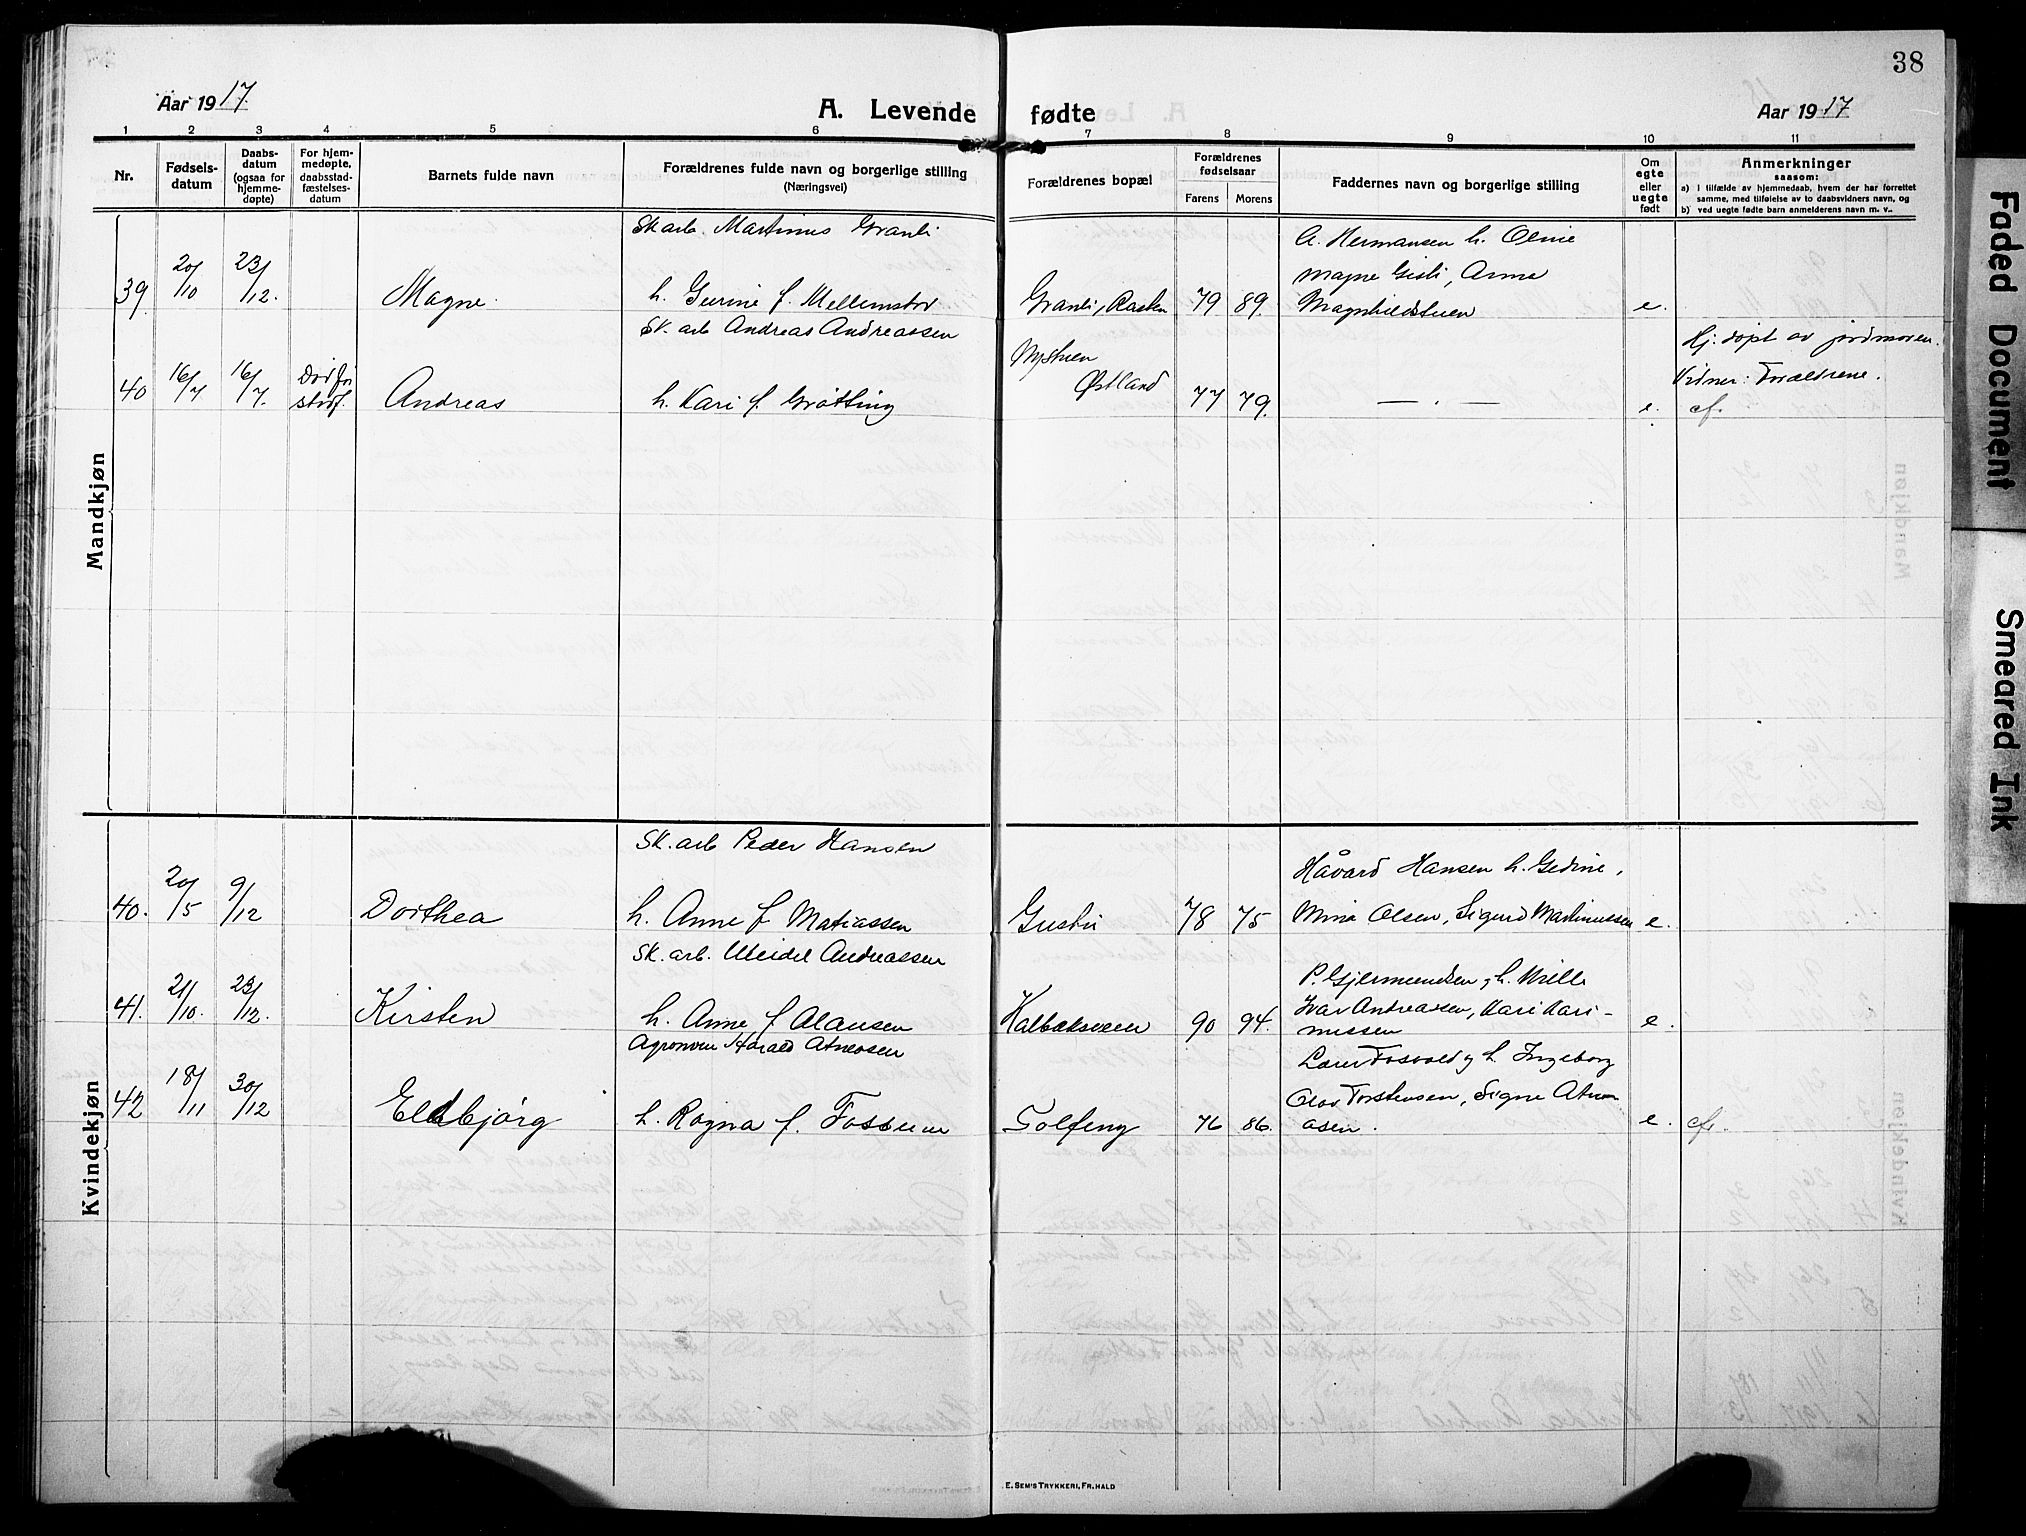 38
Aar 1917.
A. Levende fødte
Aar 1917
1 2 3 4 5 6 7 8 9 10 11
Nr.
Fødsels-
datum
Daabs-
datum
(ogsaa for
hjemme-
døpte)
For hjem-
medøpte,
daabsstad-
fæstelses-
datum
Barnets fulde navn
Forældrenes fulde navn og borgerlige stilling
(Næringsvei)
Forældrenes bopæl
Forældrenes
fødselsaar
Farens Morens
Faddernes navn og borgerlige stilling
Om
egte
eller
uegte
født
Anmerkninger
saasom:
a) I tilfælde av hjemmedaab, hvem der har forrettet
samme, med tilføielse av to daabsvidners navn, og
b) ved uegte fødte barn anmelderens navn m. v..
Mandkjøn
Sk arb. Martinus Granli
A. Hermansen h. Oline
Magne Gisli, Anna
39. 20/10 23/12. Magne. h. Gurine f. Mellemstor Granli, Rasken 79 89. Magnhildstuen e.
Sk. arb Andreas Andreassen
Hj. døpt av jordmoren.
Nystuen
Vidner: Forældrene.
40 16/7 16/7. Død før stadf. Andreas h. Kari f. Grøtting Østland 77 79. — . — e. cf.
Kvindekjøn
Sk. arb Peder Hansen
Håvard Hansen h. Gedine,
40. 20/5 9/12 Dorthea h. Anne f Matiassen 78 75 Mina Olsen, Sigurd Martinussen e.
Sk. arb. Meidel Andreassen
P. Gjermundsen, h. Mille
Ivar Andreassen, Kari Kari-
41. 21/10. 23/12. Kirsten h. Anne f Olausen 90 94. nussen e.
Agronom Harald Atneosen
h. Ingeborg
Olav Torstensen, Signe Atne
42 18/11 30/12 Eldbjørg h. Ragna f. Fossum Solfeng 76 86. osen. e. cf.
E. SEM'S TRYKKERI, FR.HALD
Faded Document
Smeared Ink